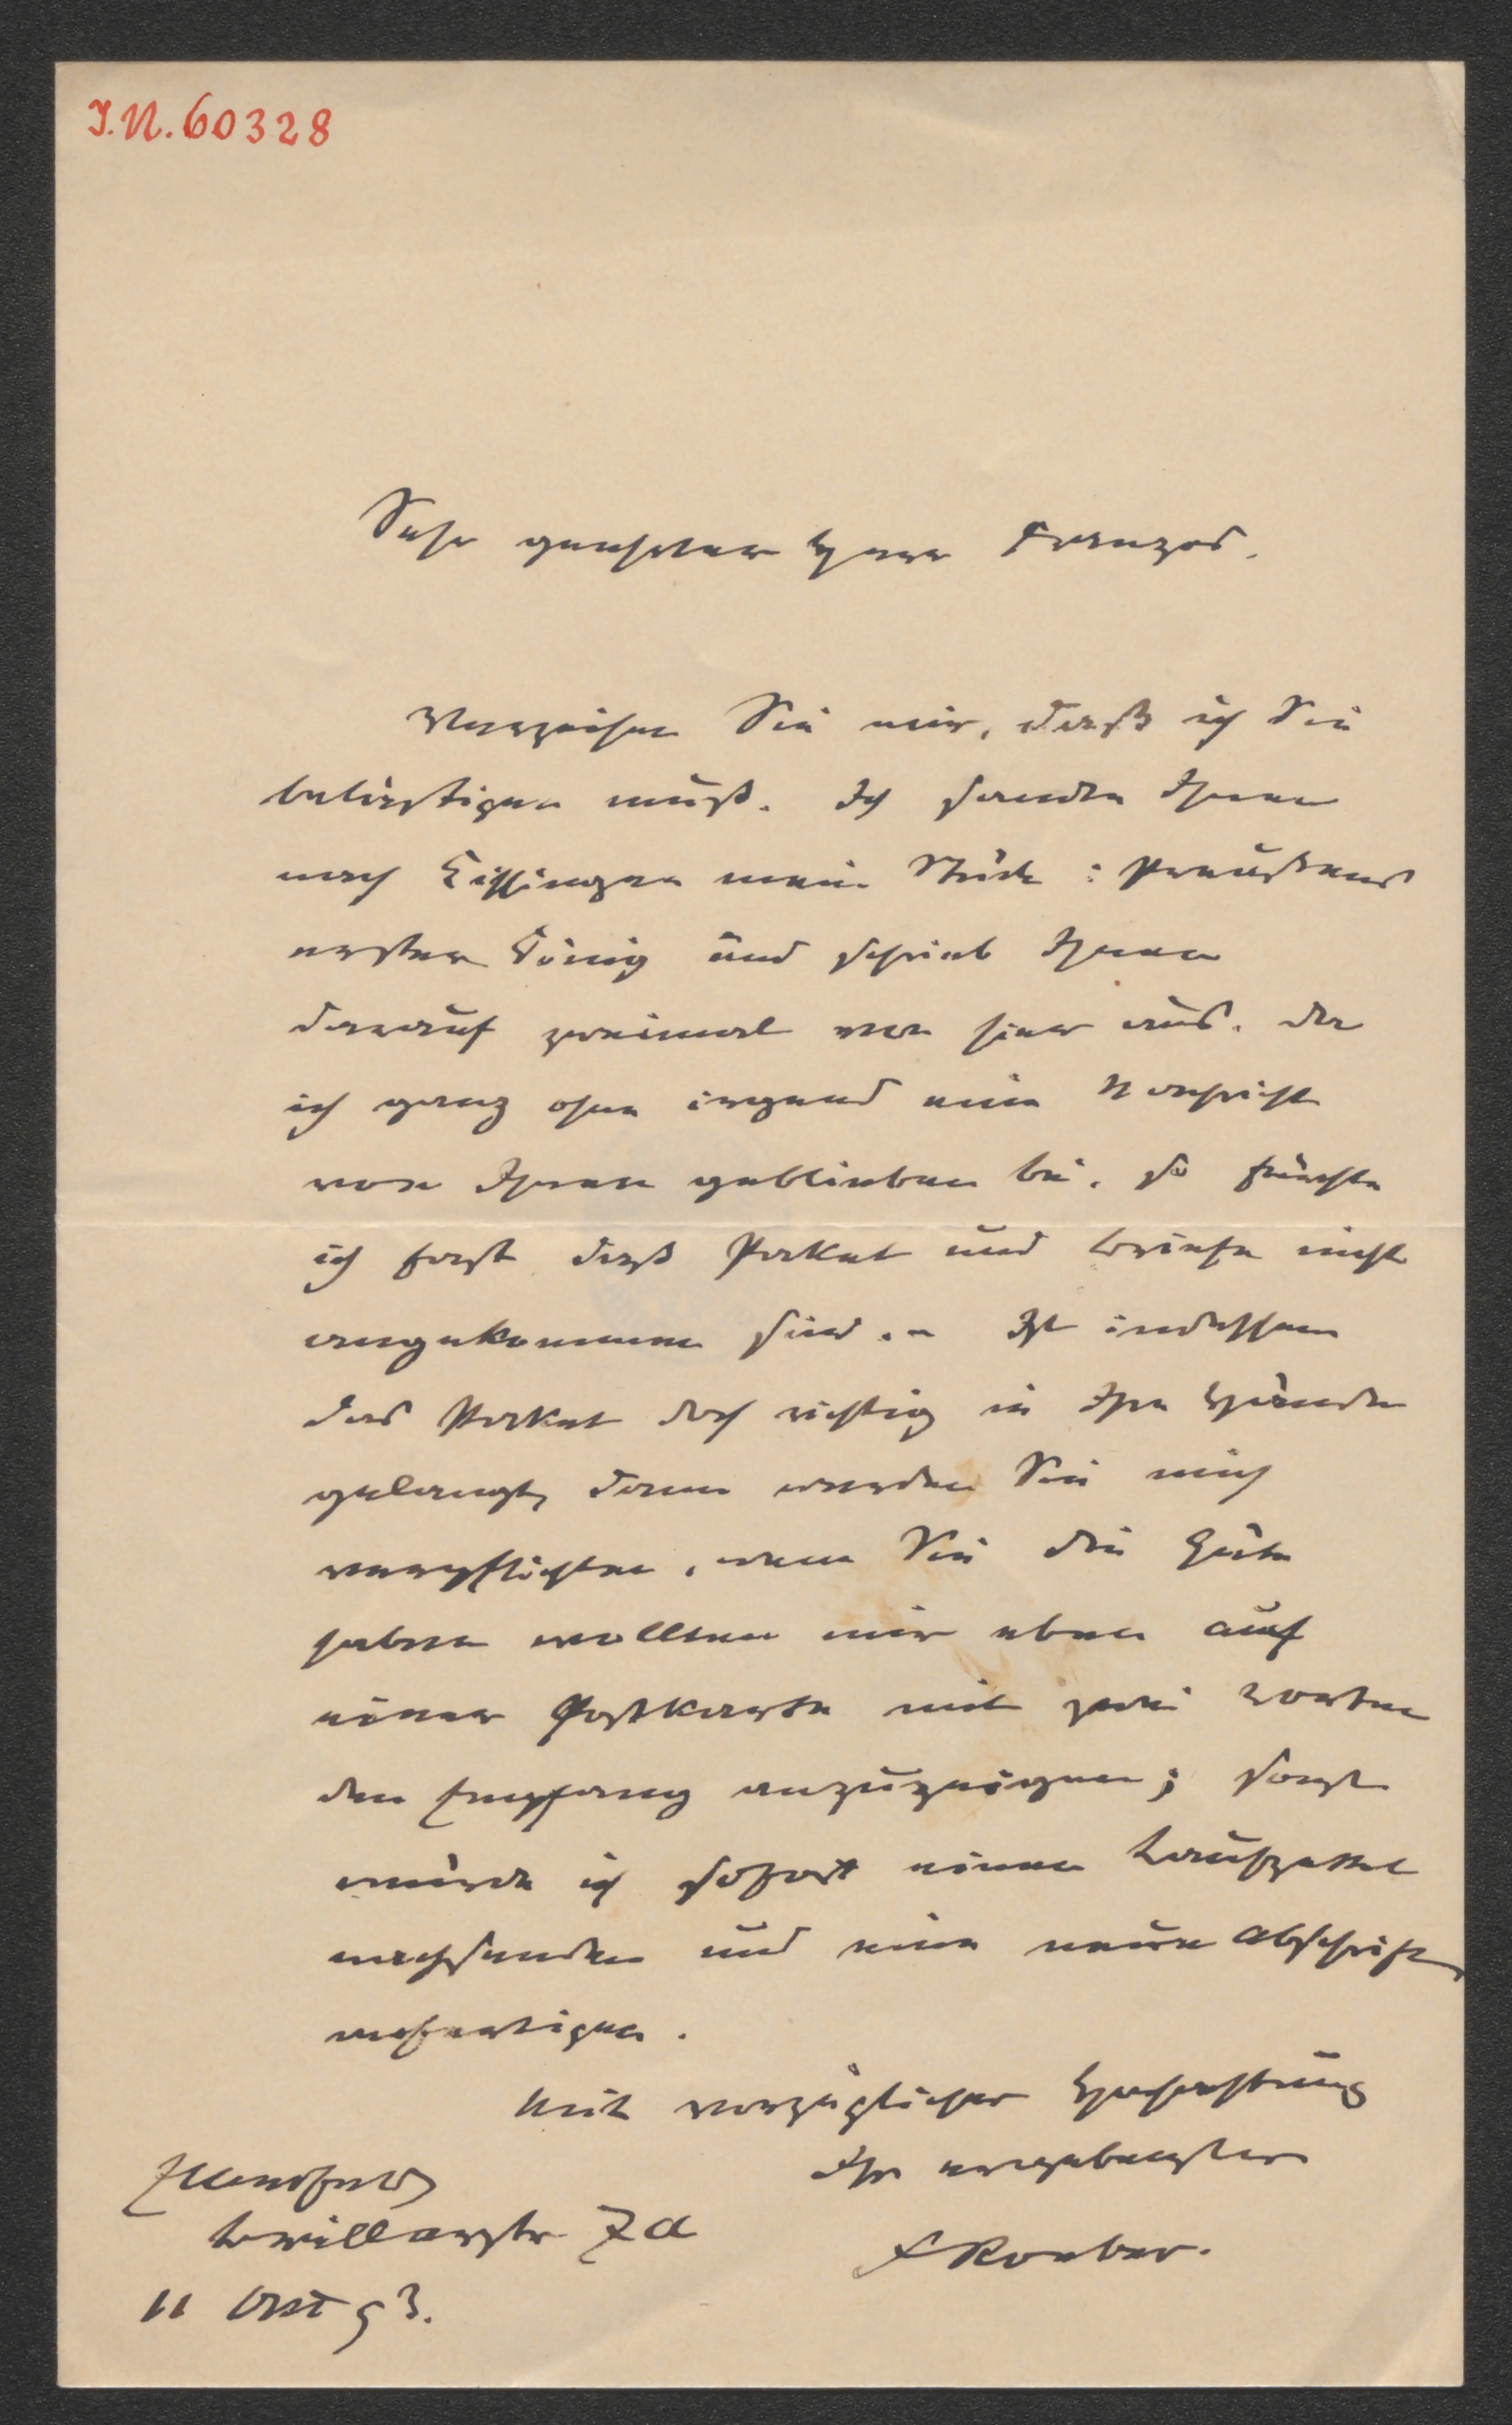 I.N. 60328
Sehr geehrter Herr Franzos.
Verzeihen Sie mir, daß ich Sie
belästigen muß. Ich sandte Ihnen
nach Kissingen mein Stück: Preussens
erster König und schrieb Ihnen
darauf zweimal von hier aus. Da
ich ganz ohne irgend eine Nachricht
von Ihnen geblieben bin, so fürchte
ich fast daß Packet und Briefe nicht
angekommen sind. – Ist indessen
das Packet doch richtig in Ihre Hände
gelangt, dann werden Sie mich
verpflichten, wenn Sie die Güte
haben wollten mir eben auf
einer Postkarte mit zwei Worten
den Empfang anzuzeigen; sonst
würde ich sofort einen Laufzettel
nachsenden und eine neue Abschrift
anfertigen.
Mit vorzüglicher Hochachtung
Ihr ergebenster
F Roeber.
Elberfeld
Brillerstr 7a
11 Oct 93.